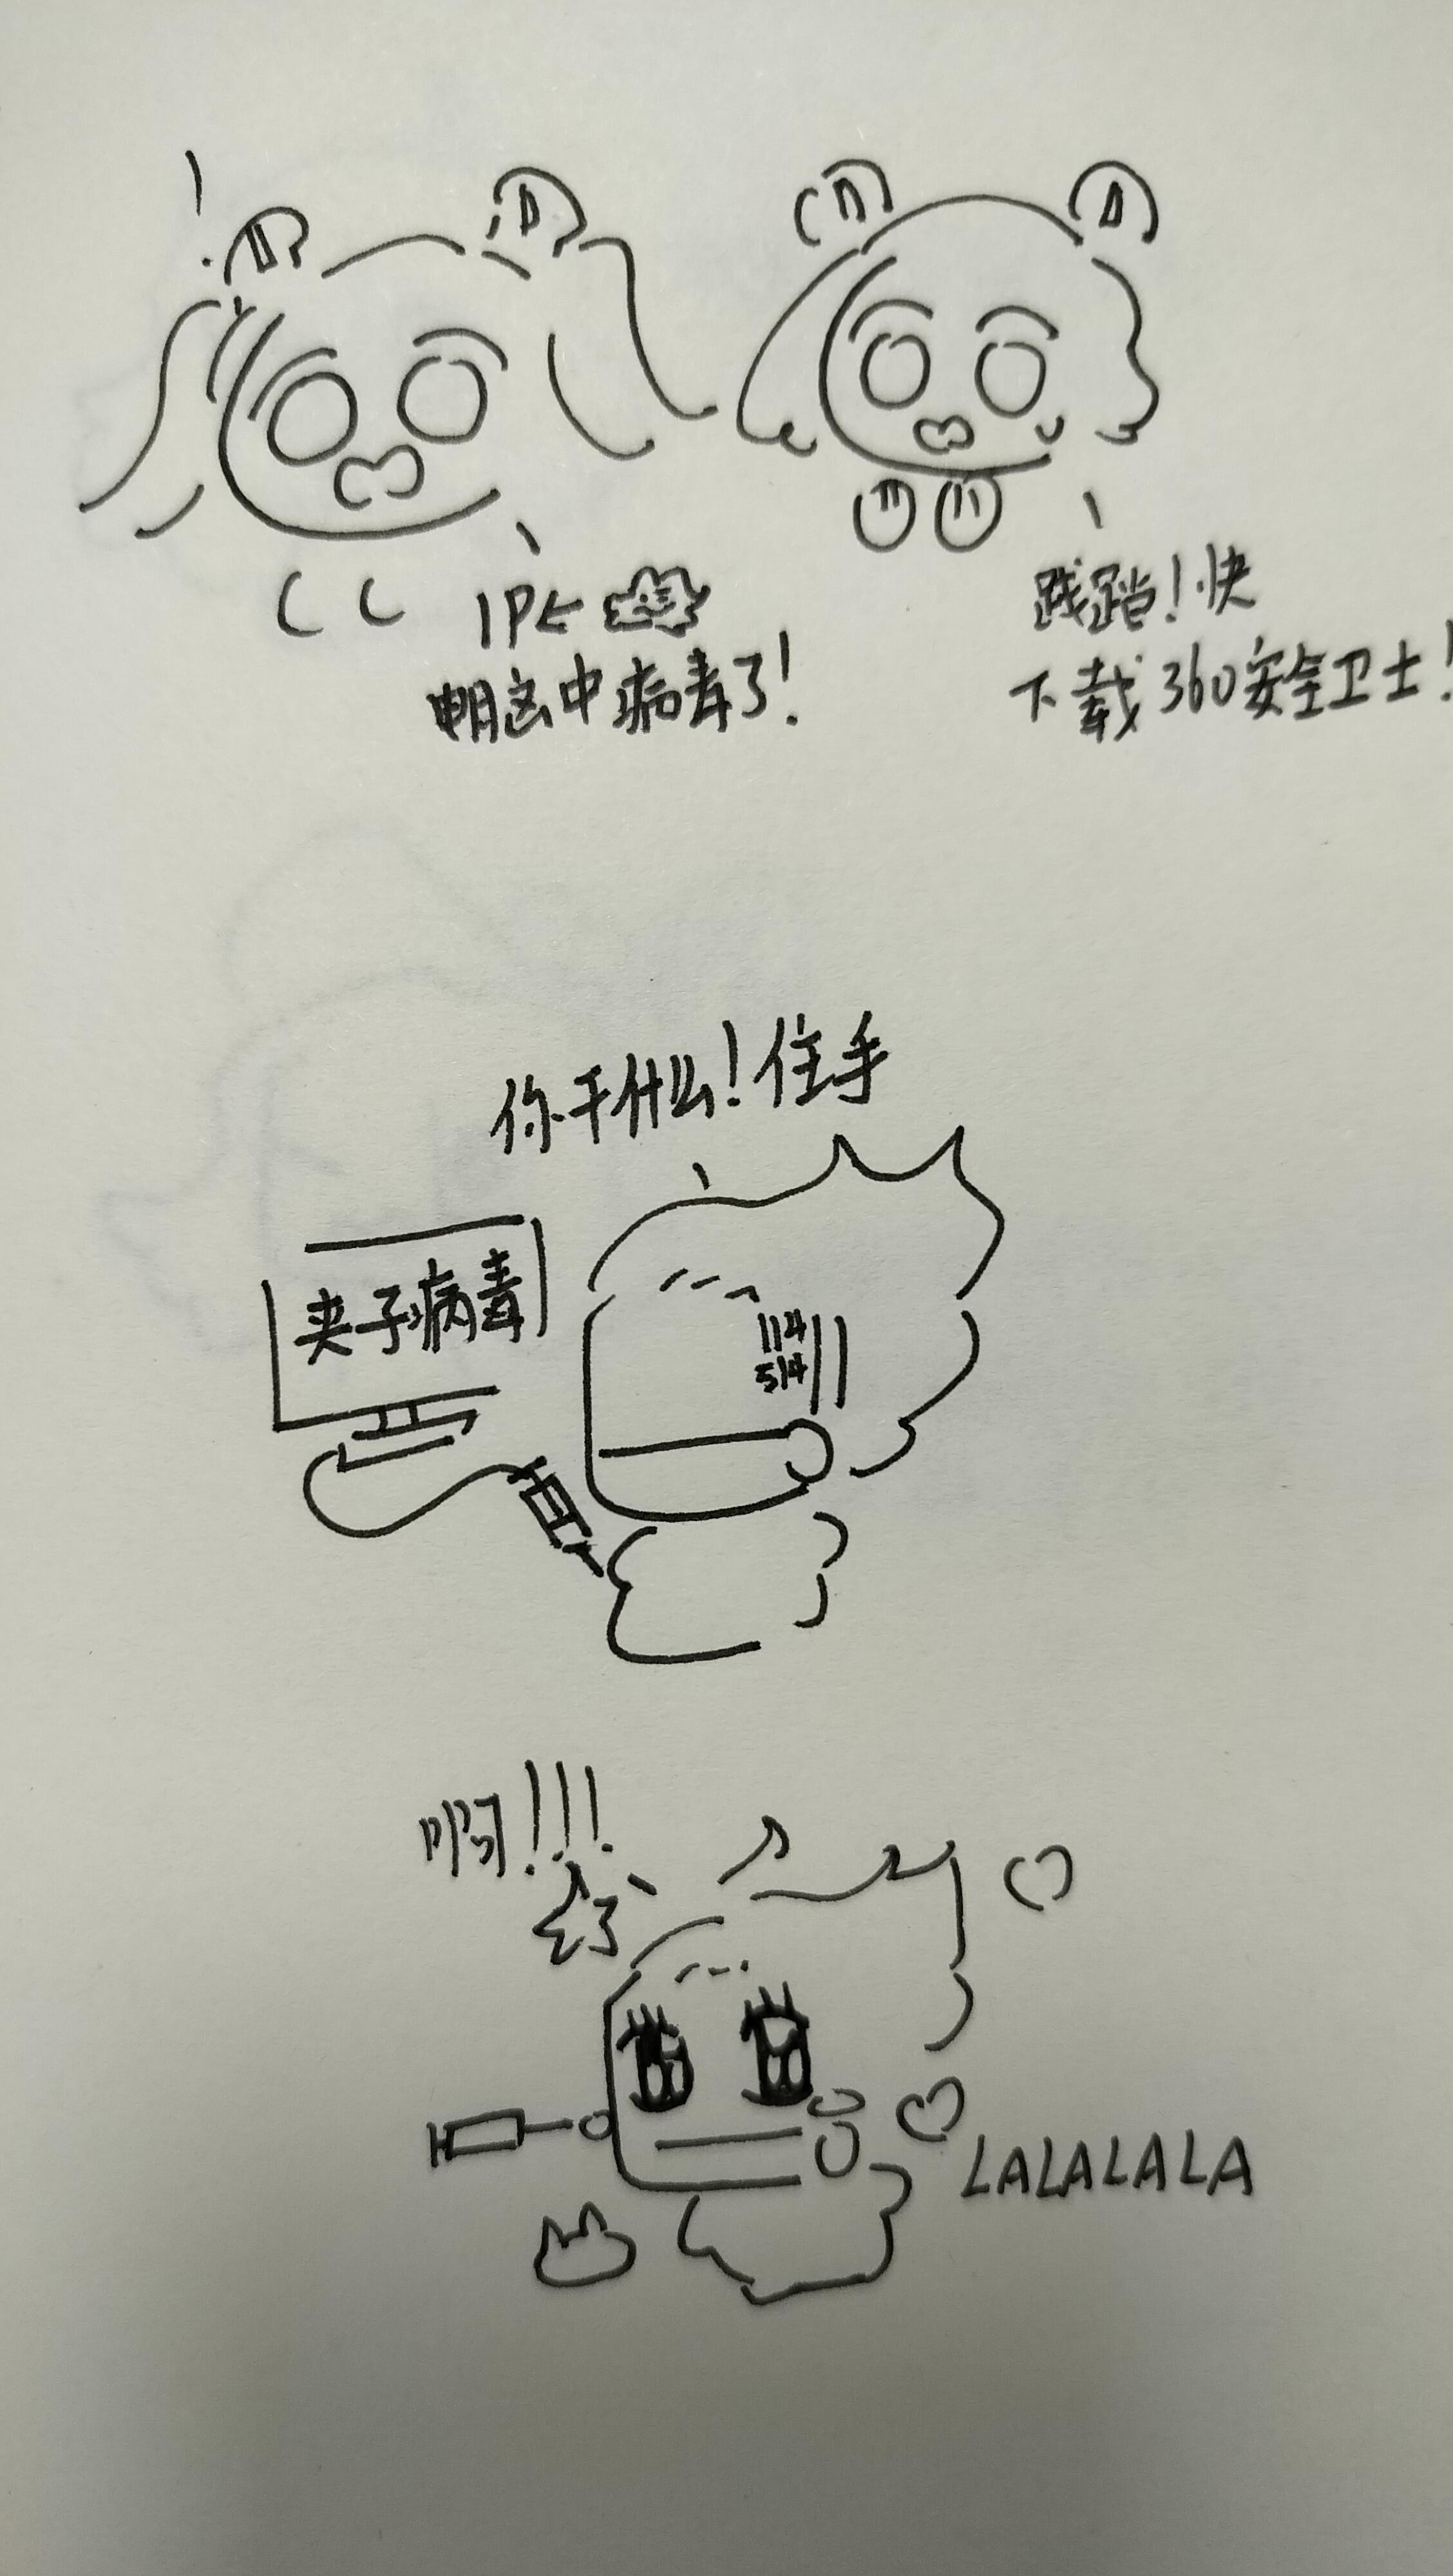 中病毒了！
践踏！快
下载360安全卫士！
你干什么！住手
夹子病毒
114
514
啊！！！
LALALALA